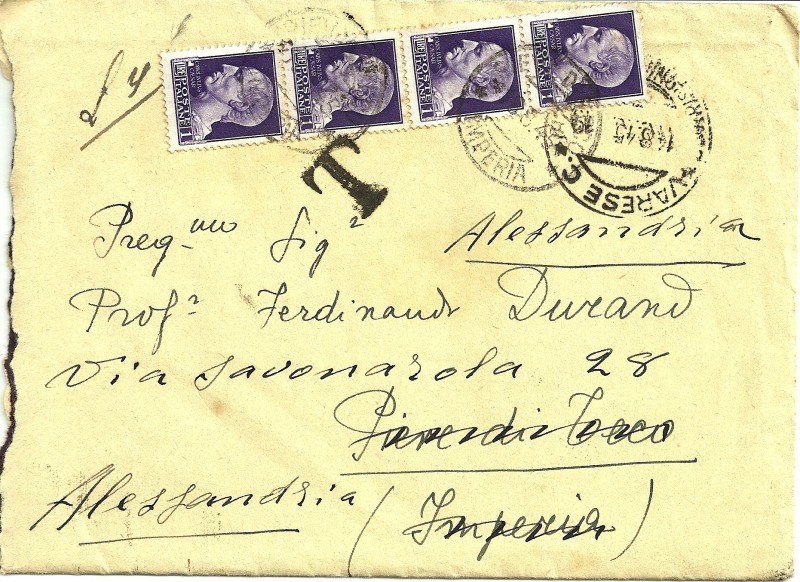 £ 4
POSTE ITALIANE POSTE ITALIANE POSTE ITALIANE POSTE ITALIANE
IMPERIA
VARESE C.
14.8.45
T
Preg.mo Sig.r Alessandria
Prof.r Ferdinando Durand
Via Savonarola 28
Pieve di Teco
Alessandria (Imperia)